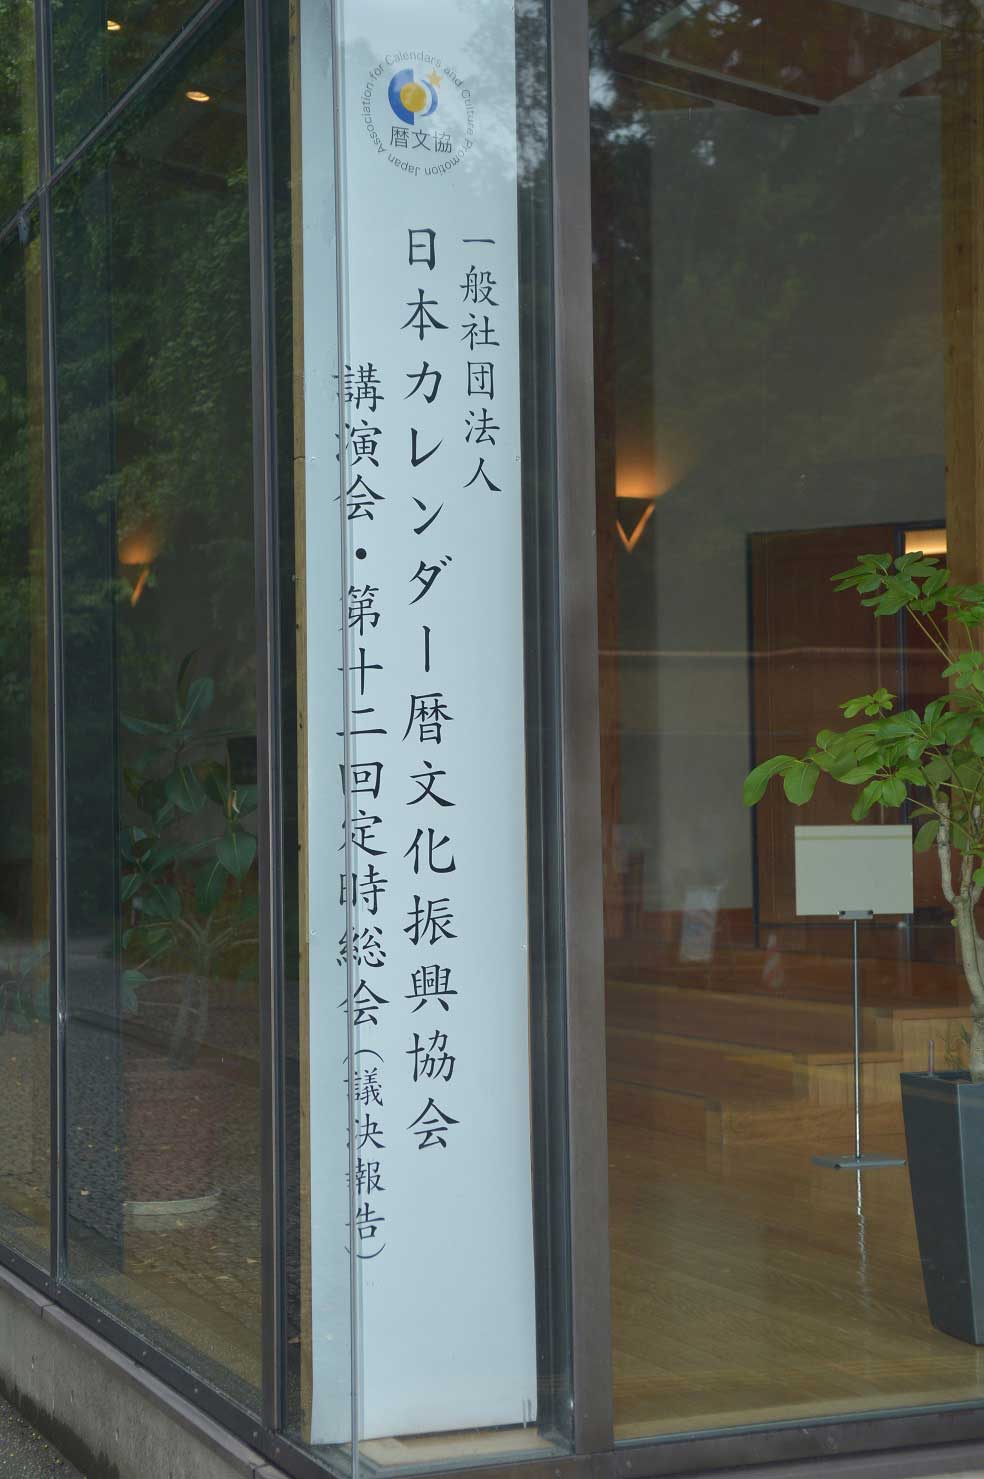 Association for Calendars and Culture Promotion Japan
暦文協
一般社団法人
日本カレンダー暦文化振興協会
講演会・第十二回定時総会（議決報告）